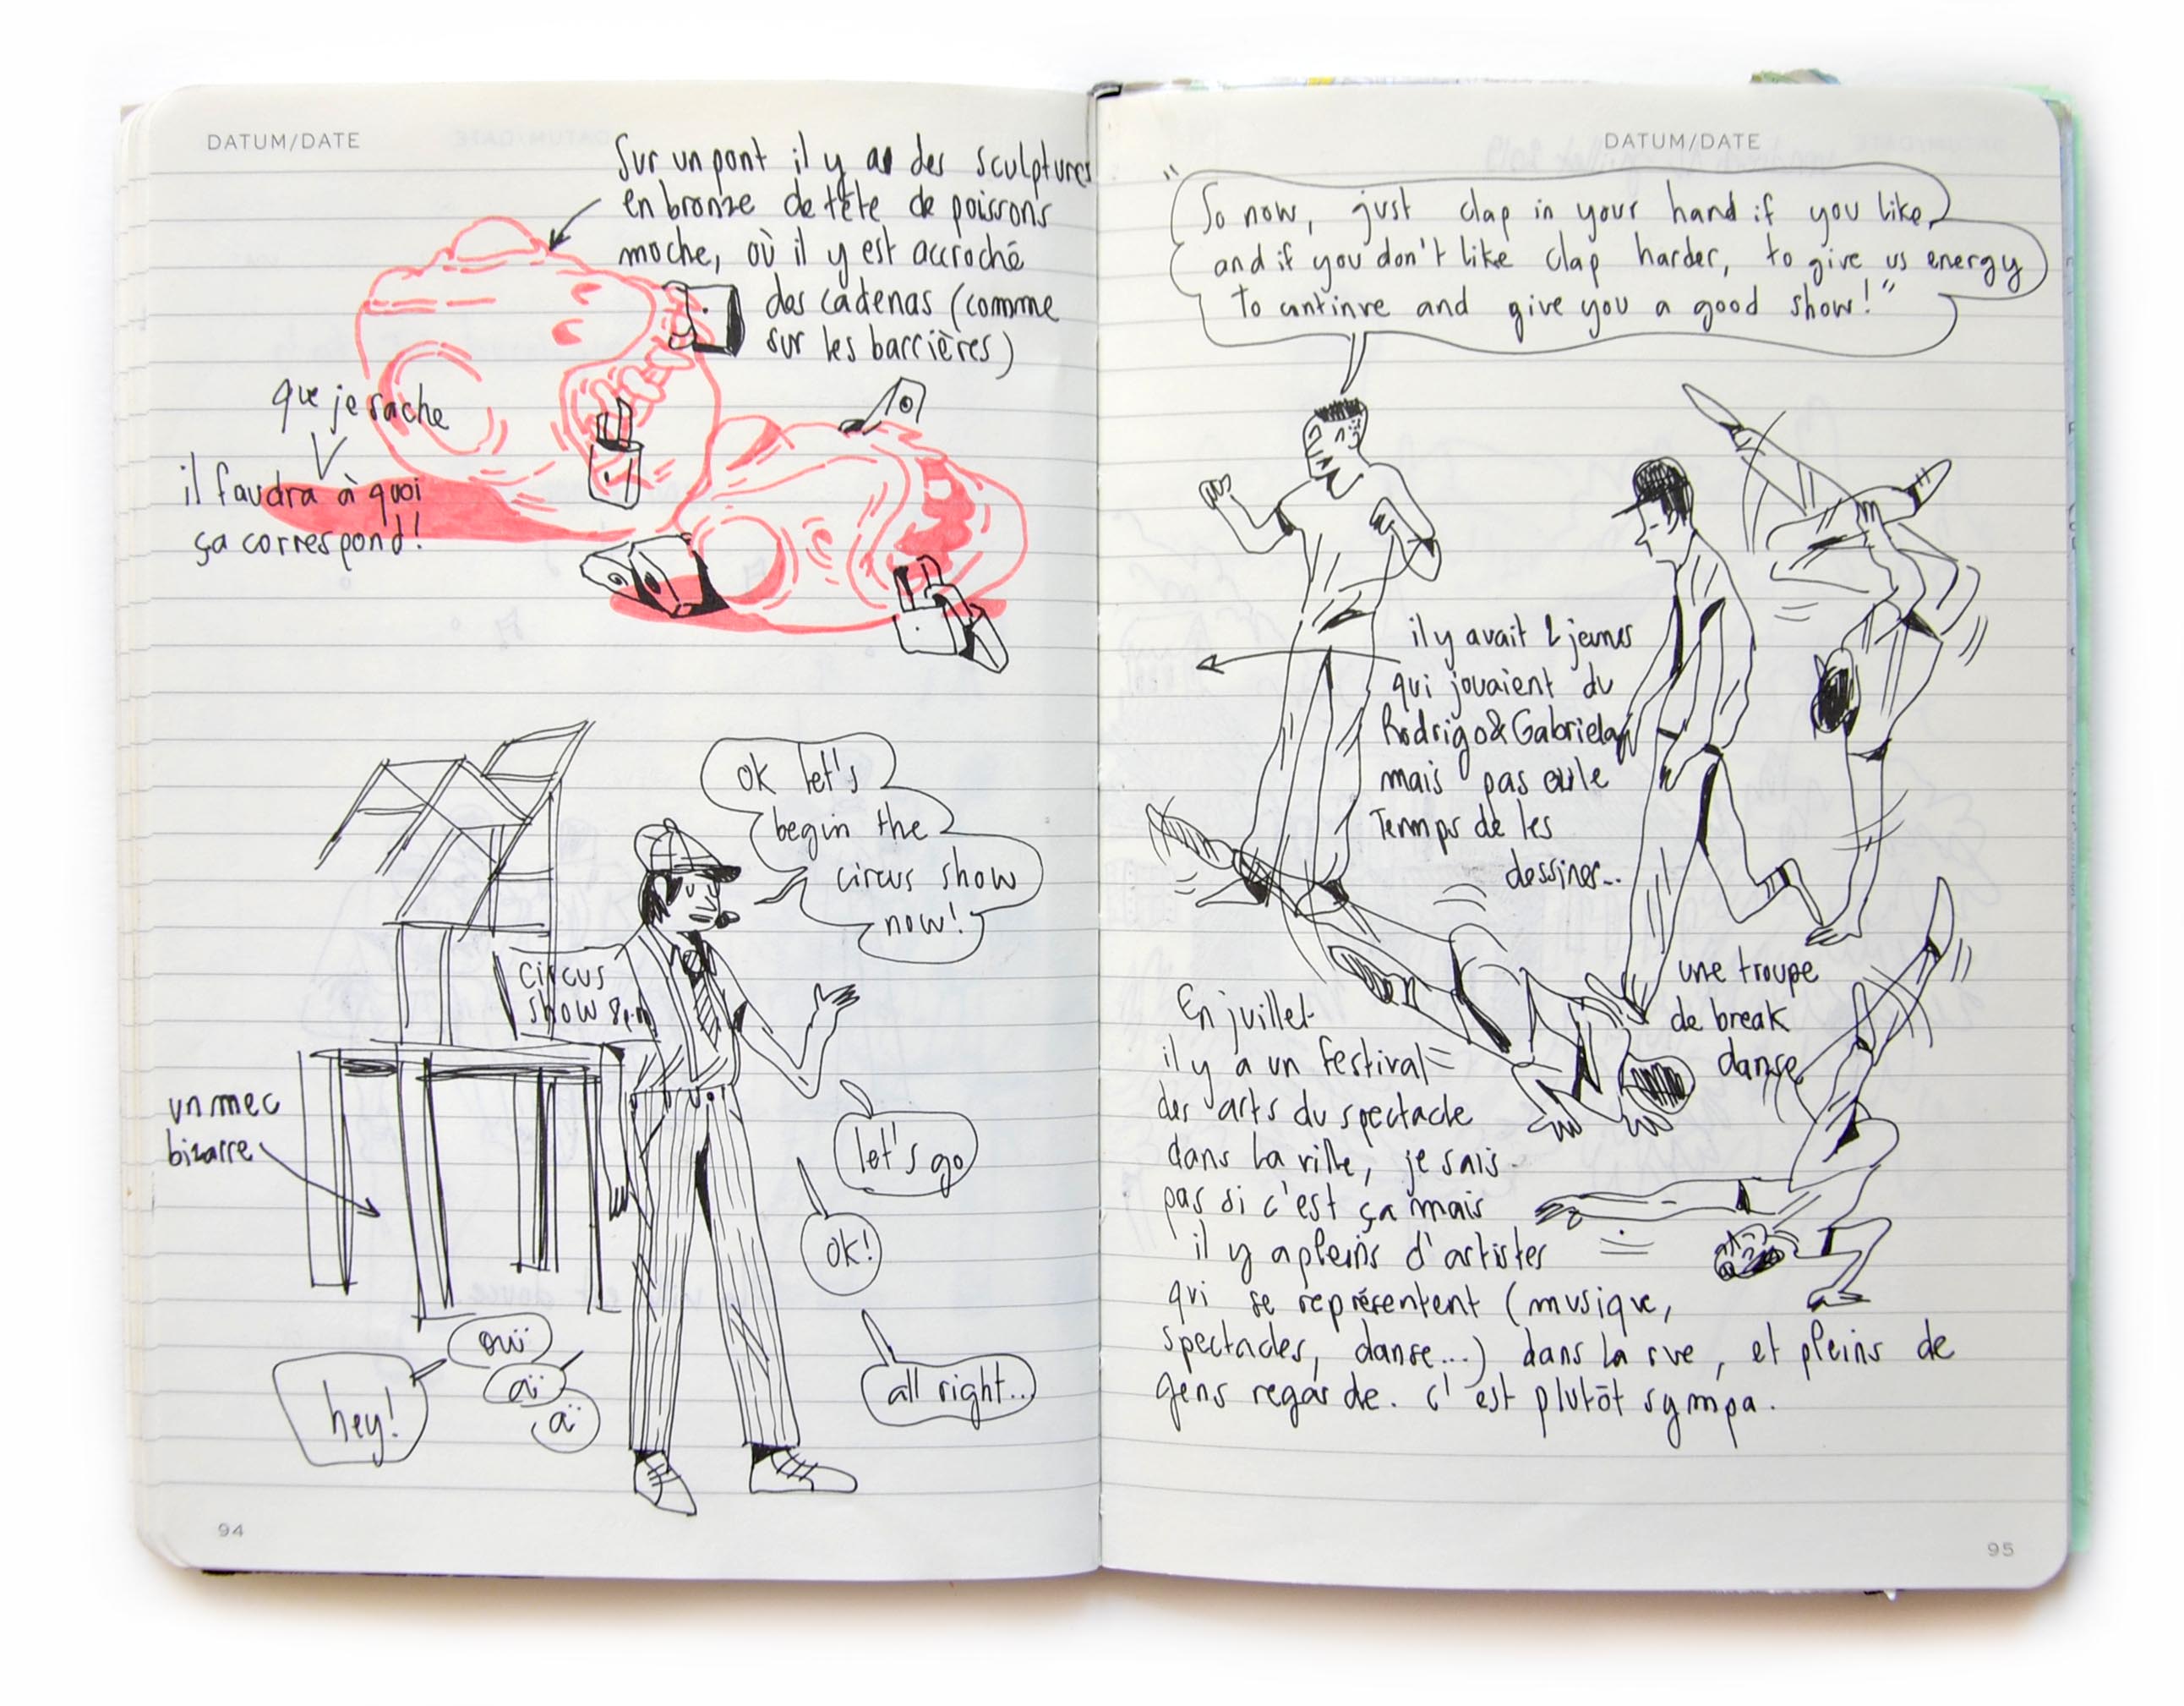 DATUM/DATE
Sur un pont il y a des sculptures
en bronze de tête de poissons
moche, où il y est accroché
des cadenas (comme
sur les barrières)
que je sache
il faudra à quoi
ça correspond!
ok let's
begin the
circus show
now!
circus
show
un mec
bizarre
let's go
ok!
all right...
ouï
aï
aï
hey!
94
DATUM/DATE
"So now, just clap in your hand if you like,
and if you don't like clap harder, to give us energy
to continue and give you a good show!"
il y avait 2 jeunes
qui jouaient du
Rodrigo & Gabriela
mais pas eu le
Temps de les
dessiner...
une troupe
de break
danse
En juillet
il y a un festival
des arts du spectacle
dans la ville, je sais
pas si c'est ça mais
il y a pleins d'artistes
qui se représentent (musique,
spectacles, danse...) dans la rue, et pleins de
gens regarde. c'est plutôt sympa.
95